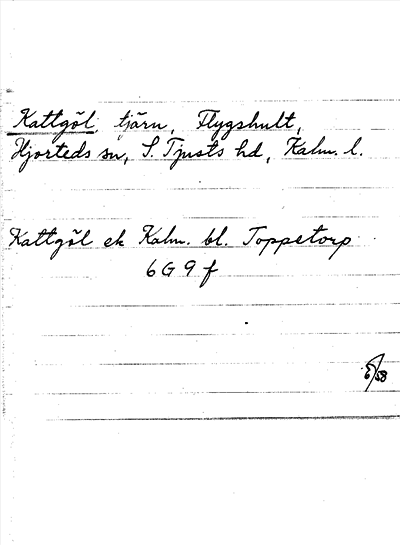 Kattgöl, tjärn, Flygshult,
Hjorteds sn, S. Tjusts hd, Kalm. l.
Kattgöl ek Kalm. bl. Toppetorp
6G9f
5/58